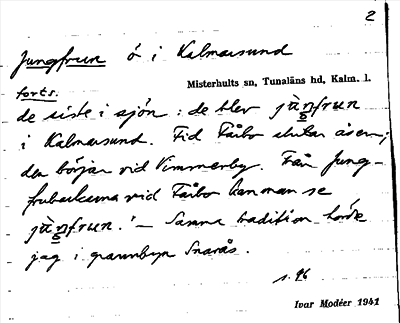 2
Jungfrun ö i Kalmarsund
Misterhults sn, Tunaläns hd, Kalm. l.
forts.
de siste i sjön; de blev jùŋfrun
i Kalmarsund. Vid Fårbo slutar åsen;
den börjar vid Vimmerby. Från Jung-
frubackarna vid Fårbo kan man se
jùŋfrun." – Samma tradition hörde
jag i grannbyn Snarås.
s. 96
Ivar Modéer 1941